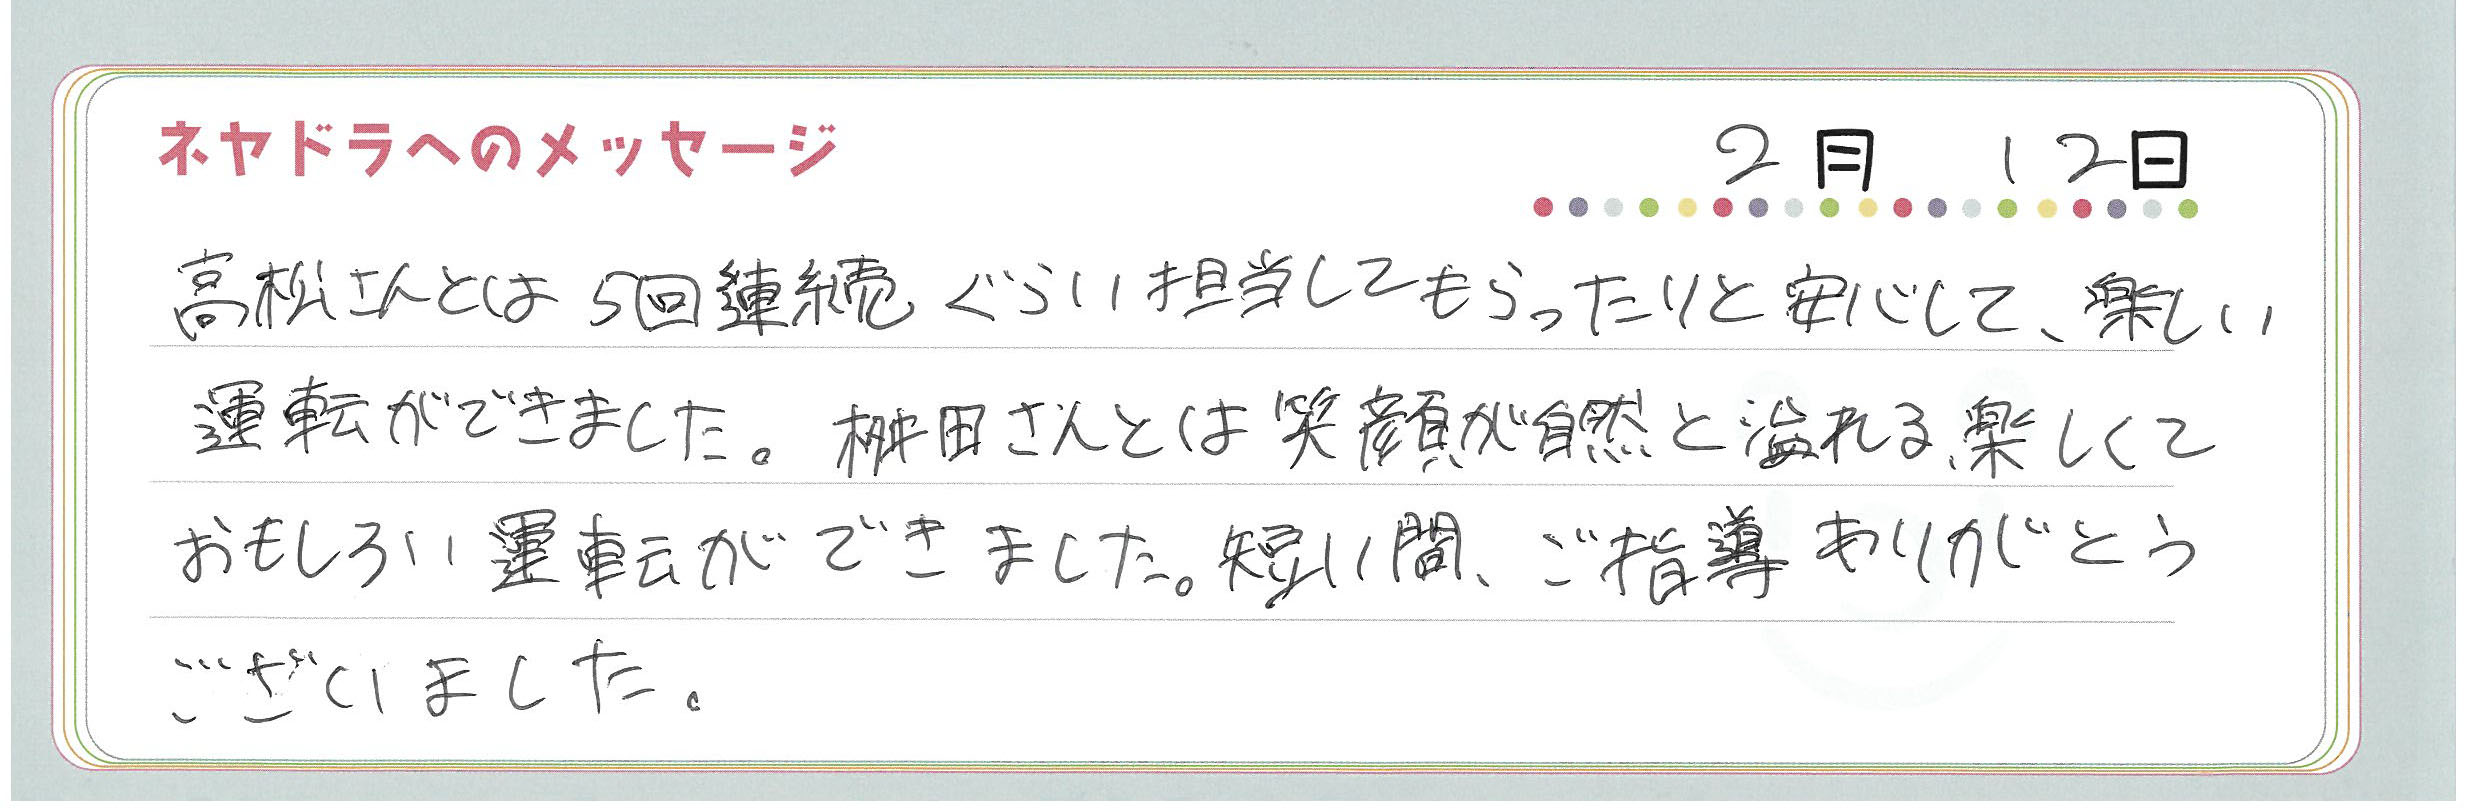 ネヤドラへのメッセージ
2月 12日
高松さんとは5回連続ぐらい担当してもらったりと安心して、楽しい
運転ができました。柳田さんとは笑顔が自然と溢れる、楽しくて
おもしろい運転ができました。短い間、ご指導ありがとう
ございました。